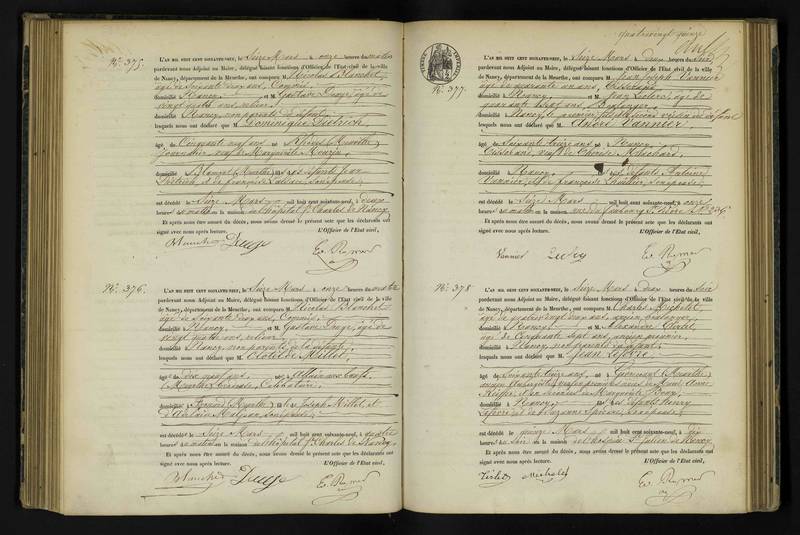 quatrevingt quinze
N°. 375.
L'AN MIL HUIT CENT SOIXANTE-NEUF, le Seize Mars à onze heures du matin
pardevant nous Adjoint au Maire, délégué faisant fonctions d'Officier de l'Etat civil de la ville
de Nancy, département de la Meurthe, ont comparu M. Nicolas Blanchet,
âgé de Soixante deux ans, Commis,
domicilié à Nancy, et M. Gustave âgé de
vingt quatre ans,
domicilié à Nancy, non parents du défunt,
lesquels nous ont déclaré que M. Dominique Dietrich,
âgé de Cinquante neuf ans né à (Meurthe)
journalier, veuf de Marguerite
domicilié à Blamont (Meurthe) fils des défunts Jean
Dietrich, et de françoise son épouse,
est décédé le Seize Mars mil huit cent soixante-neuf, à deux
heures du matin en la maison de l'hôpital St. Charles de Nancy.
Et après nous être assuré du décès, nous avons dressé le présent acte que les déclarants ont
signé avec nous après lecture. L'Officier de l'Etat civil,
Blanchet
N°. 376.
L'AN MIL HUIT CENT SOIXANTE-NEUF, le Seize Mars à onze heures du matin
pardevant nous Adjoint au Maire, délégué faisant fonctions d'Officier de l'Etat civil de la ville
de Nancy, département de la Meurthe, ont comparu M. Nicolas Blanchet
âgé de Soixante deux ans, Commis,
domicilié à Nancy, et M. Gustave âgé de
vingt quatre ans,
domicilié à Nancy, non parents de la défunte,
lesquels nous ont déclaré que M. Clotilde Millot,
âgée de Dix neuf ans, née à
(Meurthe) Célibataire,
domiciliée à (Meurthe) fille de Joseph Millot, et
d'Adelaïde son épouse,
est décédée le Seize Mars mil huit cent soixante-neuf, à quatre
heures du matin en la maison de l'hôpital St. Charles de Nancy.
Et après nous être assuré du décès, nous avons dressé le présent acte que les déclarants ont
signé avec nous après lecture. L'Officier de l'Etat civil,
Blanchet
N°. 377.
L'AN MIL HUIT CENT SOIXANTE-NEUF, le Seize Mars à deux heures du soir,
pardevant nous Adjoint au Maire, délégué faisant fonctions d'Officier de l'Etat civil de la ville
de Nancy, département de la Meurthe, ont comparu M. Jean Joseph Vannier
âgé de quarante un ans, Tisserand,
domicilié à Nancy, et M. Jean âgé de
quarante sept ans,
domicilié à Nancy, le premier fils, le second voisin du défunt
lesquels nous ont déclaré que M. André Vannier,
âgé de Soixante treize ans né à Nancy,
Tisserand, veuf de Thérèse
domicilié à Nancy, fils des défunts Antoine
Vannier, et de françoise son épouse,
est décédé le Seize Mars mil huit cent soixante-neuf, à onze
heures du matin en la maison rue du faubourg St. Pierre N°. 226.
Et après nous être assuré du décès, nous avons dressé le présent acte que les déclarants ont
signé avec nous après lecture. L'Officier de l'Etat civil,
Vannier
N°. 378
L'AN MIL HUIT CENT SOIXANTE-NEUF, le Seize Mars deux heures du soir
pardevant nous Adjoint au Maire, délégué faisant fonctions d'Officier de l'Etat civil de la ville
de Nancy, département de la Meurthe, ont comparu M. Charles Michelet,
âgé de quatrevingt deux ans, ancien
domicilié à Nancy, et M. Alexandre Tirlet,
âgé de Cinquante sept ans, ancien
domicilié à Nancy, non parents du défunt,
lesquels nous ont déclaré que M. Jean Lefevre,
âgé de Soixante treize ans, né à (Meurthe)
ancien veuf en premières noces de Marie Anne
et en secondes de Marguerite
domicilié à Nancy, fils des défunts Henry
Lefevre et de Suzanne son épouse,
est décédé le quinze Mars mil huit cent soixante-neuf, à dix
heures du soir en la maison de l'hospice St. Julien de Nancy.
Et après nous être assuré du décès, nous avons dressé le présent acte que les déclarants ont
signé avec nous après lecture. L'Officier de l'Etat civil,
Tirlet Michelet